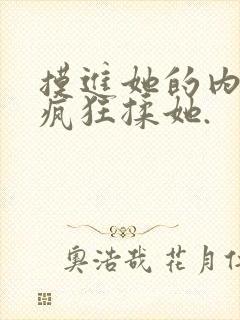 摸進她的内
疯狂揉她.
奥浩哉 花月仁